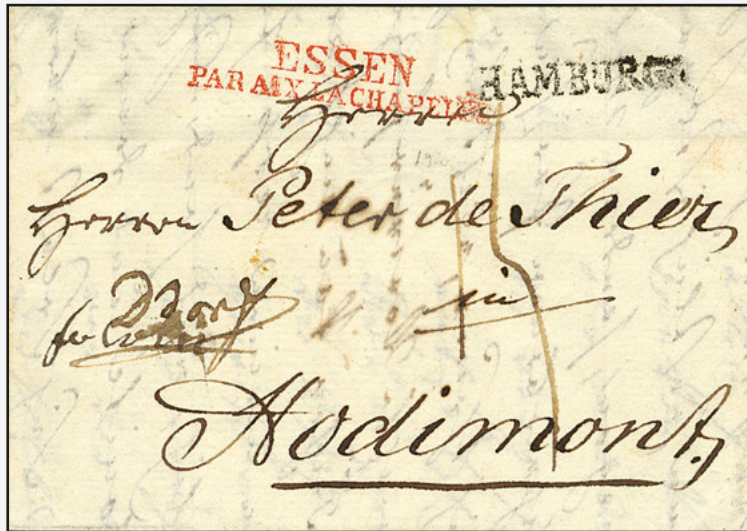 ESSEN
PAR AIX LA CHAPELLE
HAMBURG
Herren
Herren Peter de Thier,
in
Hodimont,